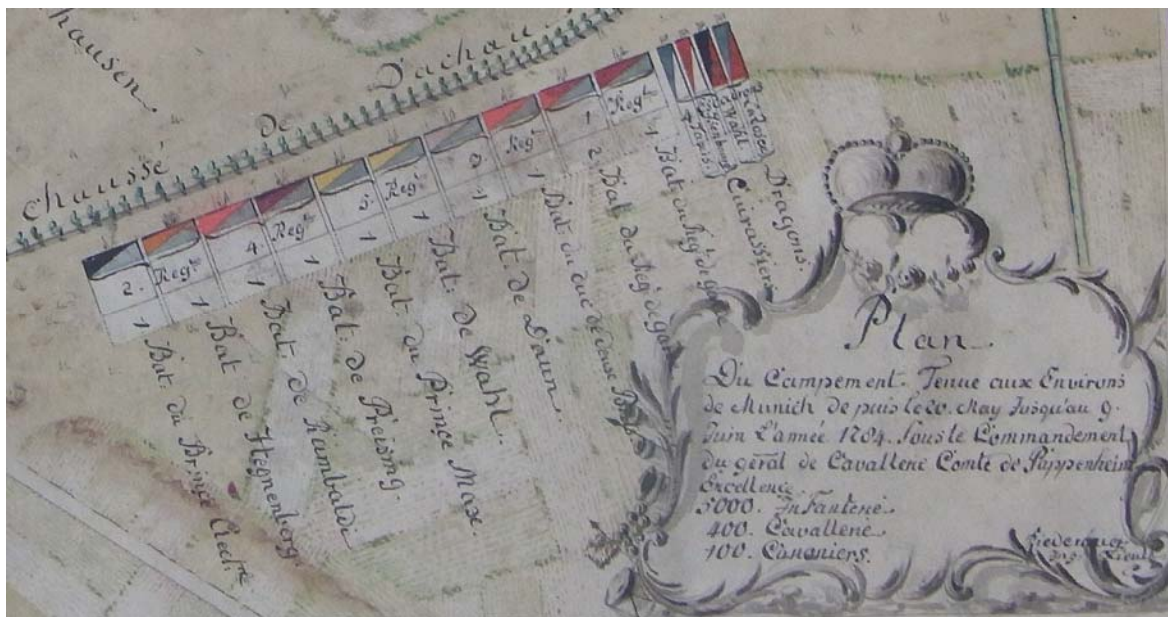 hausen
chaussé de Dachau
2. Reg.t 4 Reg.t 3 Reg.t 2 Reg.t 1 Reg.t
1 Bat: du Prince Elect.le
1 Bat de Hegnenberg
1 Bat: de Rambaldi
1 Bat: de Preising.
1 Bat: du Prince Max.
1 Bat: de Wahl.
1 Bat: de Daun.
1 Bat du duc de deux Ponts
2 Bat du Reg.t de garde
1 Bat: du Reg.t de garde
Taxis.
Wahl
Cuirassiers
Dragons.
Plan
Du Campement. Tenue aux Environs
de Munich depuis le 20. May Jusqu'au 9.
Juin L'année 1784. Sous le Commandement
du gèral de Cavallerie Comte de Pappenheim
Excellence.
5000. Infanterie.
400. Cavallerie.
100. Cananiers.
Ing: Lieut: